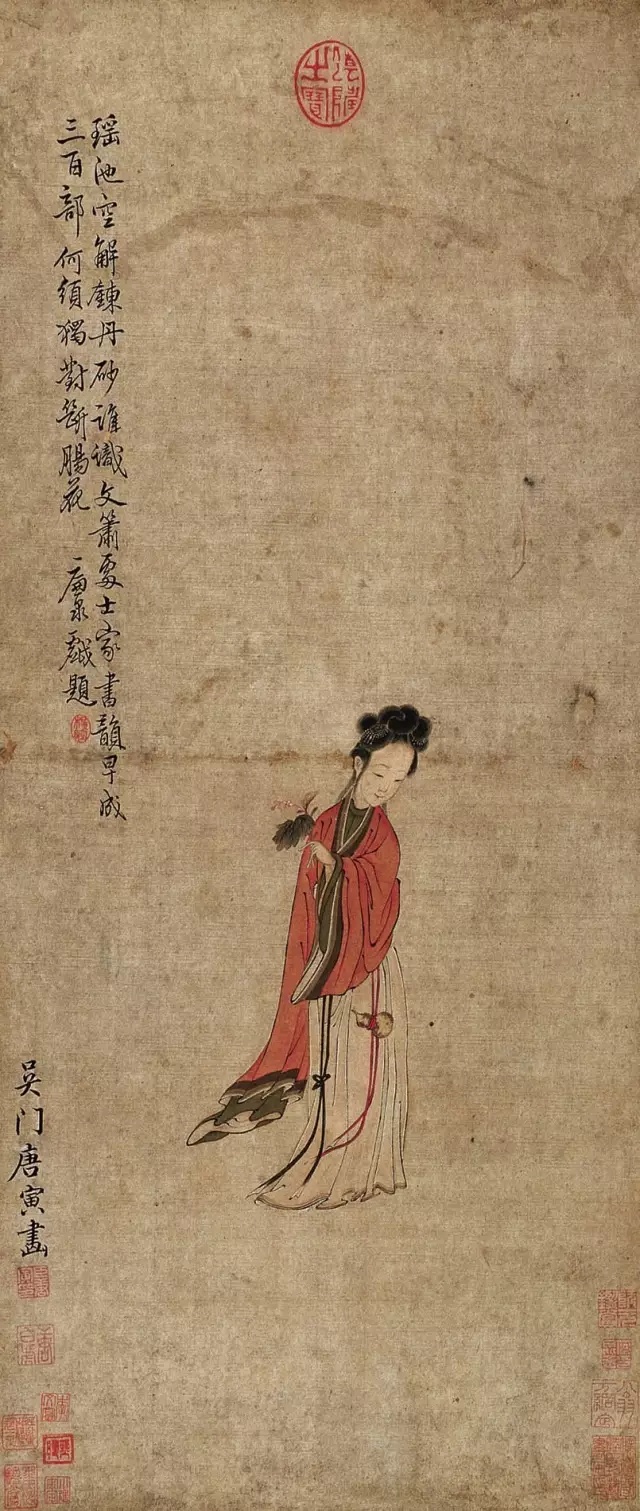 瑶池空解鍊丹砂誰識文簫處士家書韻早成
三百部何須獨對斷腸花
戲題
吳门唐寅畫